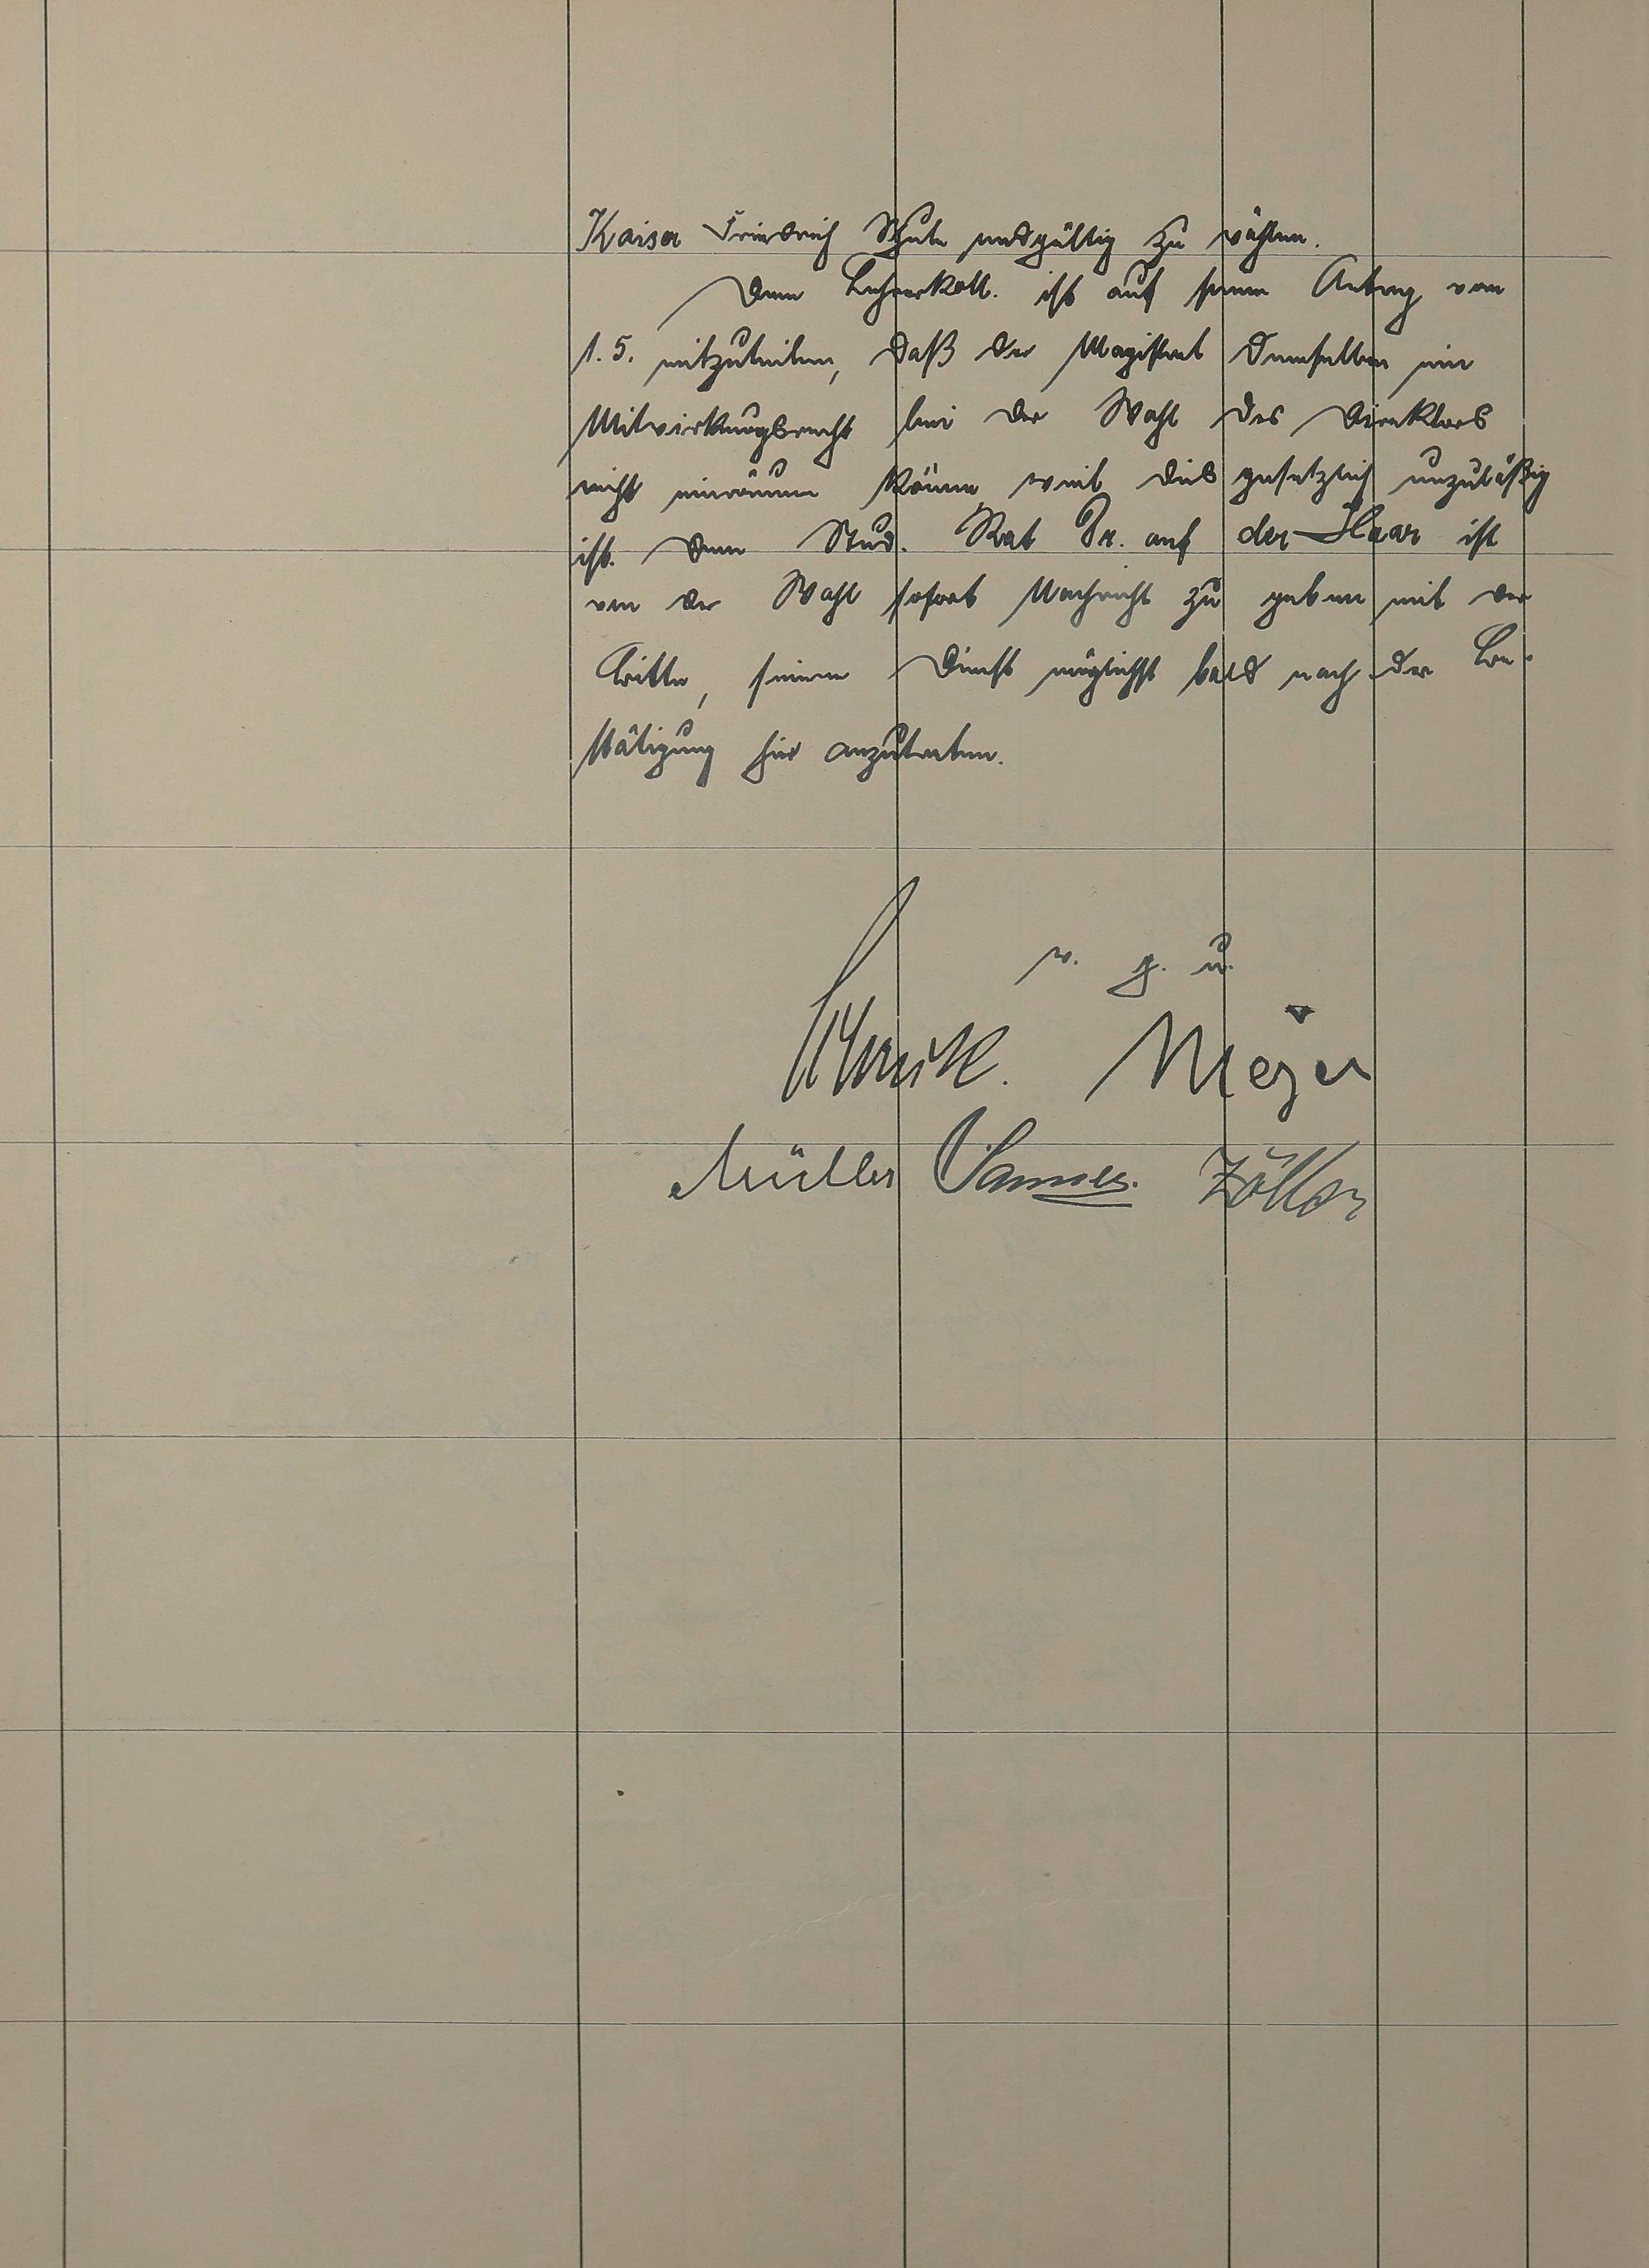 Kaiser Friedrich Schule endgültig zu wählen.
Dem Lehrerkoll. ist auf seinen Antrag vom
1. 5. mitzuteilen, daß der Magistrat demselben ein
Mitwirkungsrecht bei der Wahl des Direktors
nicht einräumen könne, weil dies gesetzlich unzuläßig
ist. Dem Stud. Rat Dr. auf der Haar ist
von der Wahl sofort Nachricht zu geben mit der
Bitte, seinen Dienst möglichst bald nach der Be-
stätigung hier anzutreten.
v. g. u.
Meyer
Müller Zöller